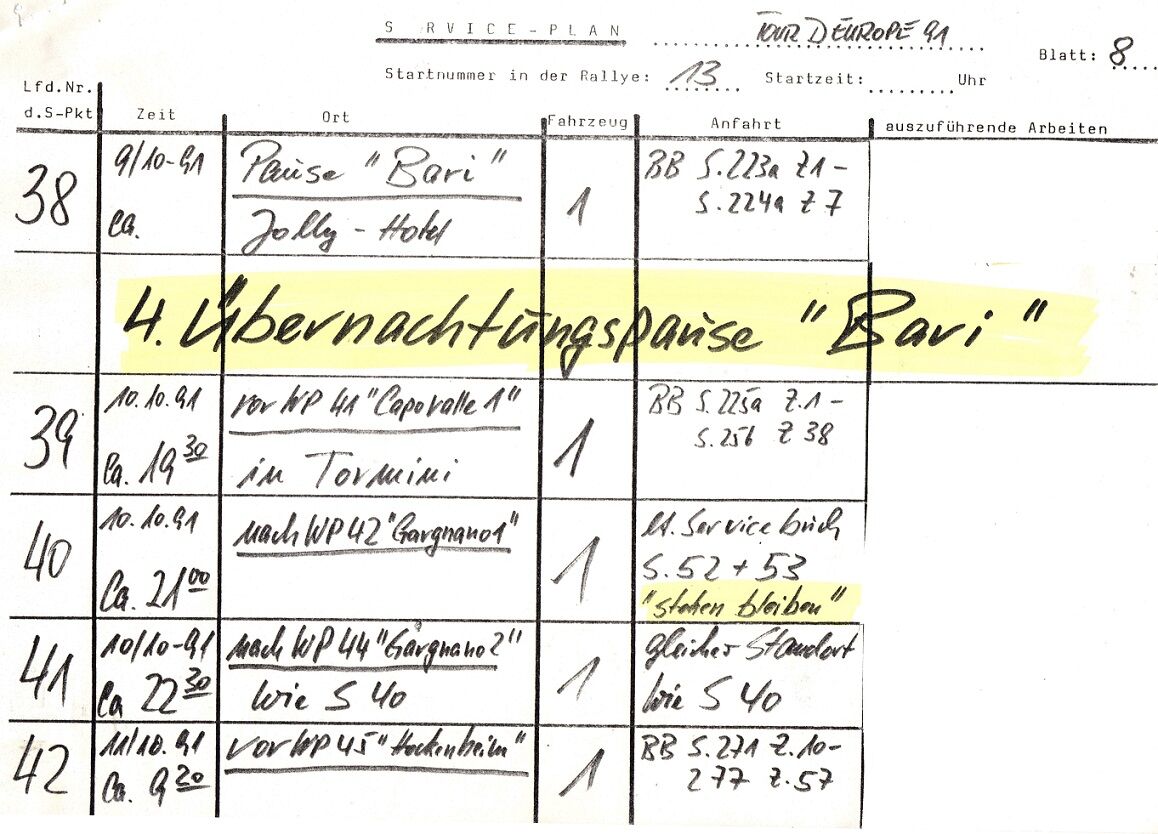 S RVICE-PLAN TOUR D'EUROPE 91
Blatt: 8
Startnummer in der Rallye: 13 Startzeit: Uhr
Lfd.Nr.
d.S-Pkt Zeit Ort Fahrzeug Anfahrt auszuführende Arbeiten
38 9/10-91 Pause "Bari" 1 BB S.223a Z1-
S.224a Z 7
ca. Jolly-Hotel
4. Übernachtungspause "Bari"
39 10.10.91 vor WP 41 "Capovalle 1" 1 BB S.225a Z.1-
S.256 Z 38
ca. 19 30 in Tormini
40 10.10.91 nach WP 42 "Gargnano1" 1 lt. Servicebuch
S.52 + 53
Ca. 21 00 "stehen bleiben"
41 10/10-91 nach WP 44 "Gargnano2" 1 gleicher Standort
Ca 22 30 wie S 40 wie S 40
42 11/10.91 vor WP 45 "Hockenheim" 1 BB S.271 Z.10-
Ca. 9 20 277 Z.57